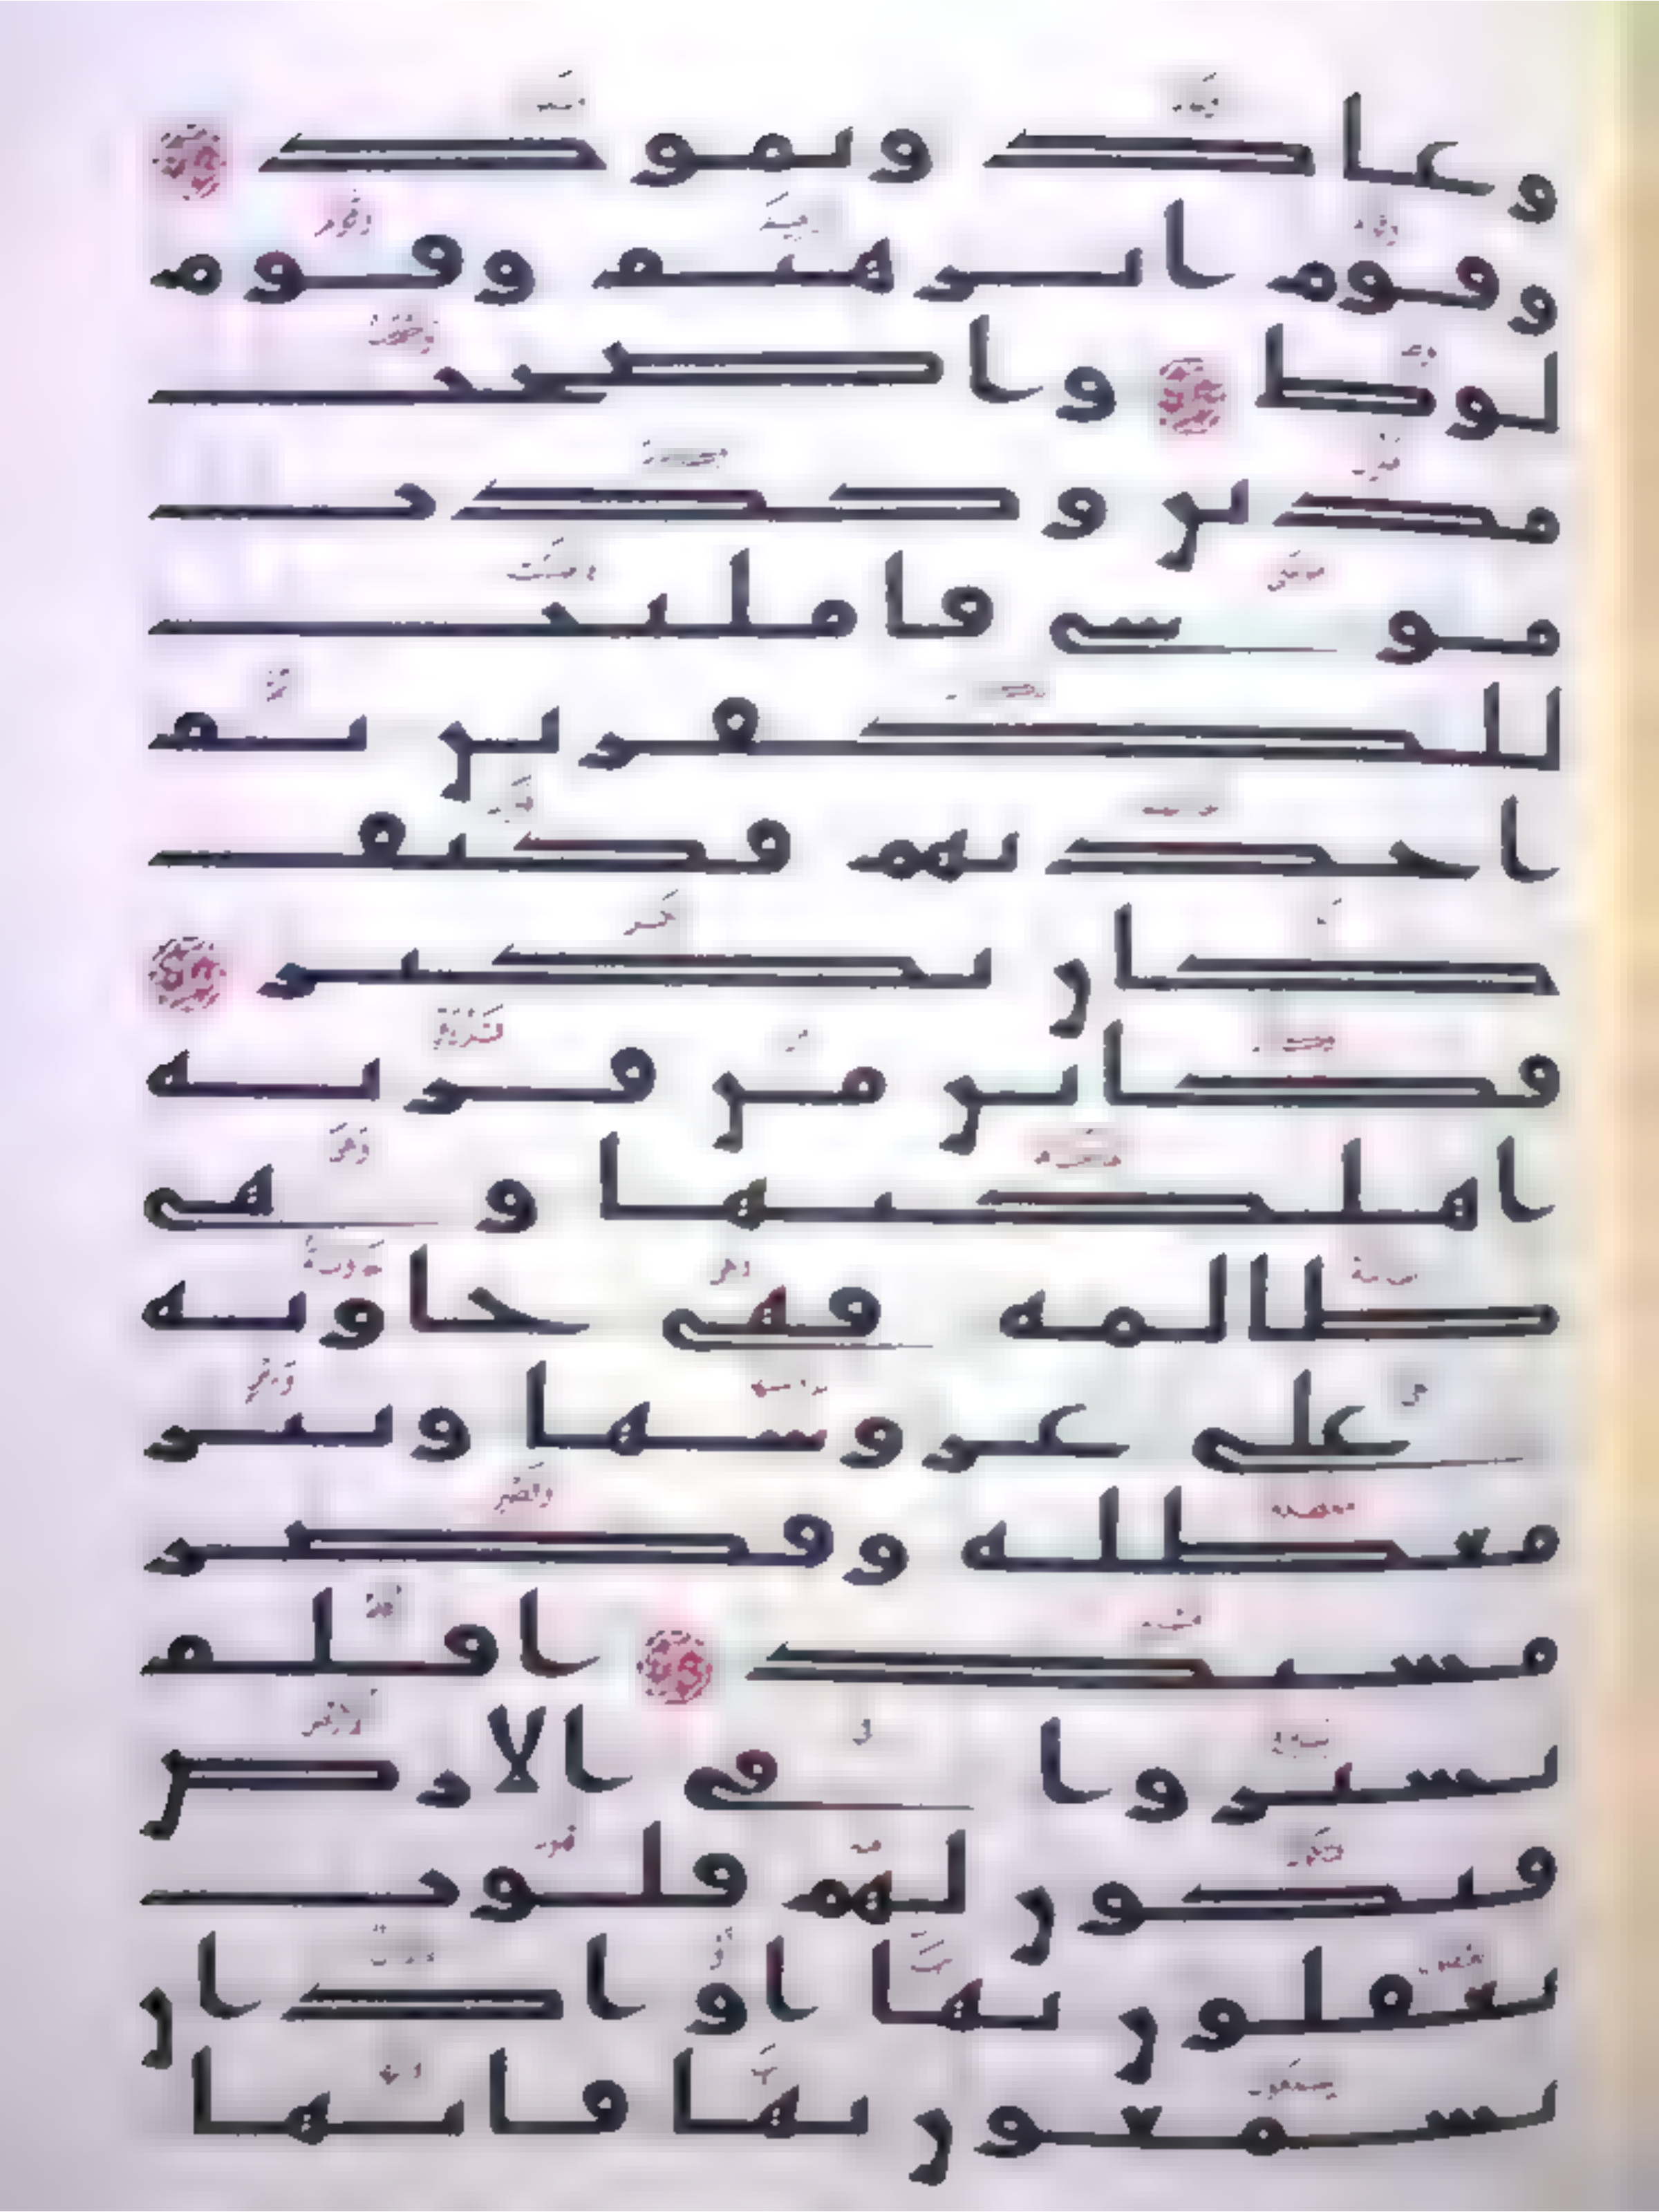 وعاد وثمود
وقوم ابرهيم وقوم
لوط واصحب
مدين وكذب
موسى فامليت
للكفرين ثم
اخذتهم فكيف
كان نكير
فكاين من قرية
اهلكنها وهي
ظالمة فهي خاوية
على عروشها وبير
معطلة وقصر
مشيد افلم
يسيروا في الارض
فتكون لهم قلوب
يعقلون بها او اذان
يسمعون بها فانها